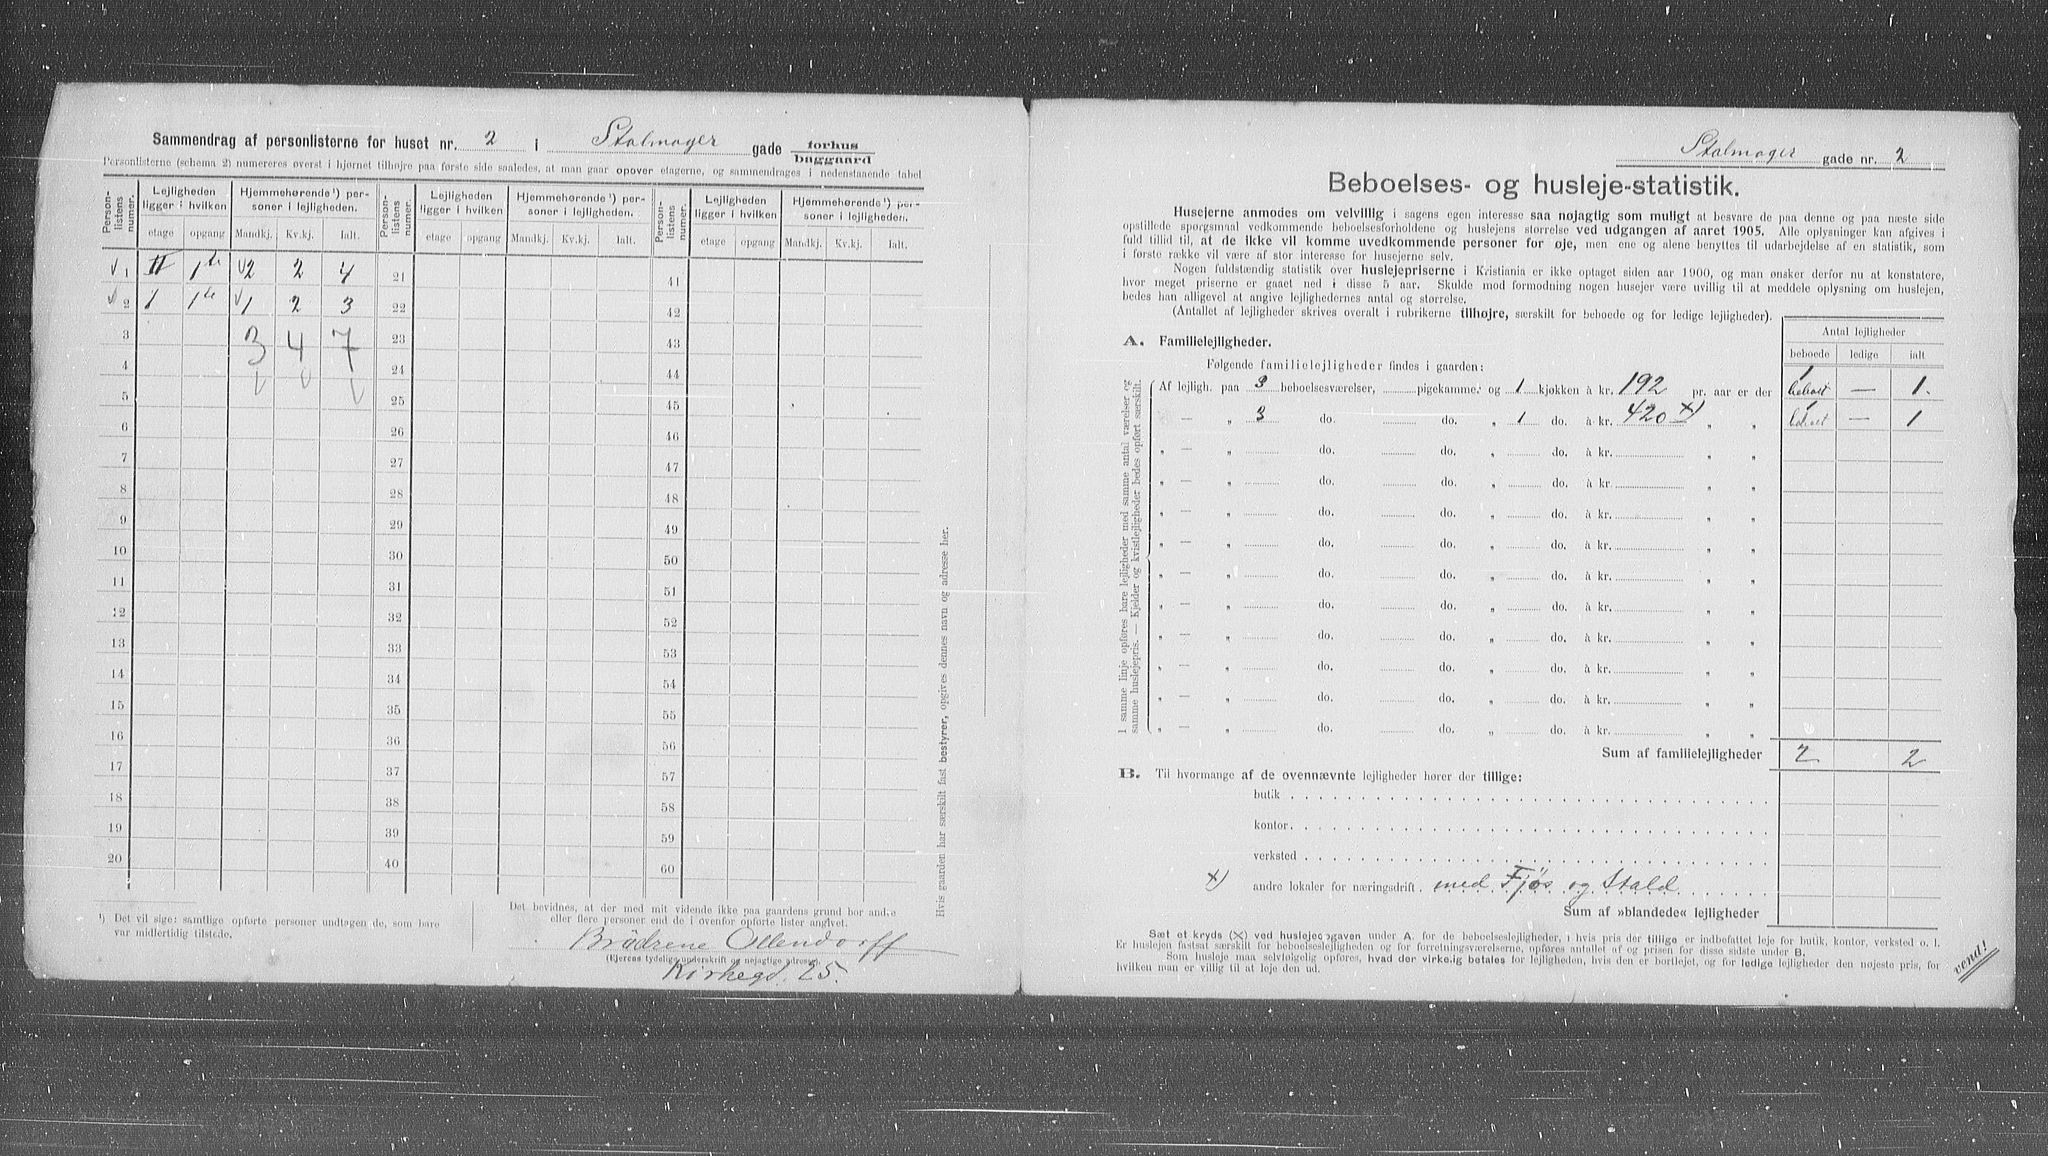 Sammendrag af personlisterne for huset nr. 2 i Stalmager gade forhus
baggaard
Personlisterne (schema 2) numereres øverst i hjørnet tilhøjre paa første side saaledes, at man gaar opover etagerne, og sammendrages i nedenstaaende tabel
Person-listens numer. Lejligheden ligger i hvilken Hjemmehørende ¹) personer i lejligheden. Person-listens numer. Lejligheden ligger i hvilken Hjemmehørende ¹) personer i lejligheden. Person-listens numer. Lejligheden ligger i hvilken Hjemmehørende ¹) personer i lejligheden.
etage opgang Mandkj. Kv.kj. Ialt. etage opgang Mandkj. Kv.kj. Ialt. etage opgang Mandkj. Kv.kj. Ialt.
1 II 1te 2 2 4 21 41
2 1 1te 1 2 3 22 42
3 3 4 7 23 43
4 24 44
5 25 45
6 26 46
7 27 47
8 28 48
9 29 49
10 30 50
11 31 51
12 32 52
13 33 53
14 34 54
15 35 55
16 36 56
17 37 57
18 38 58
19 39 59
20 40 60
¹) Det vil sige: samtlige opførte personer undtagen de, som bare
var midlertidig tilstede.
Det bevidnes, at der med mit vidende ikke paa gaardens grund bor andre
eller flere personer end de i ovenfor opførte lister angivet.
Brödrene Ollendorff
(Ejerens tydelige underskrift og nøjagtige adresse).
Kirkegd. 25.
Hvis gaarden har særskilt fast bestyrer, opgives dennes navn og adresse her.
Stalmager gade nr. 2
Beboelses- og husleje-statistik.
Husejerne anmodes om velvillig i sagens egen interesse saa nøjagtig som muligt at besvare de paa denne og paa næste side
opstillede spørgsmaal vedkommende beboelsesforholdene og huslejens størrelse ved udgangen af aaret 1905. Alle oplysninger kan afgives i
fuld tillid til, at de ikke vil komme uvedkommende personer for øje, men ene og alene benyttes til udarbejdelse af en statistik, som
i første række vil være af stor interesse for husejerne selv.
Nogen fuldstændig statistik over huslejepriserne i Kristiania er ikke optaget siden aar 1900, og man ønsker derfor nu at konstatere,
hvor meget priserne er gaaet ned i disse 5 aar. Skulde mod formodning nogen husejer være uvillig til at meddele oplysning om huslejen,
bedes han alligevel at angive lejlighedernes antal og størrelse.
(Antallet af lejligheder skrives overalt i rubrikerne tilhøjre, særskilt for beboede og for ledige lejligheder).
Antal lejligheder
beboede ledige ialt
A. Familielejligheder.
Følgende familielejligheder findes i gaarden:
I samme linje opføres bare lejligheder med samme antal værelser og
samme huslejepris. — Kjelder og kvistlejligheder bedes opført særskilt.
Af lejligh. paa 3 beboelsesværelser, pigekamme: og 1 kjøkken à kr. 192 pr. aar er der 1 beboet — 1.
— „ 3 do. do. „ 1 do. à kr. 420 x) „ „ 1 beboet — 1
„ — „ do. do. „ do. à kr. „ „
„ — „ do. do. „ do. à kr. „ „
„ — „ do. do. „ do. à kr. „ „
„ — „ do. do. „ do. à kr. „ „
„ — „ do. do. „ do. à kr. „ „
„ — „ do. do. „ do. à kr. „ „
„ — „ do. do. „ do. à kr. „ „
„ — „ do. do. „ do. à kr. „ „
„ — „ do. do. „ do. à kr. „ „
„ — „ do. do. „ do. à kr. „ „
Sum af familielejligheder 2 2
B. Til hvormange af de ovennævnte lejligheder hører der tillige:
butik
kontor
verksted
x) andre lokaler for næringsdrift. med Fjös og Stald
Sum af »blandede« lejligheder
Sæt et kryds (X) ved huslejeopgaven under A. for de beboelseslejligheder, i hvis pris der tillige er indbefattet leje for butik, kontor, verksted o. l.
Er huslejen fastsat særskilt for beboelseslejligheden og for forretningsværelserne, opføres antallet af og prisen for disse sidste under B.
Som husleje maa selvfølgelig opføres, hvad der virkelig betales for lejligheden, hvis den er bortlejet, og for ledige lejligheder den nøjeste pris, for
hvilken man er villig til at leje den ud.
vend!